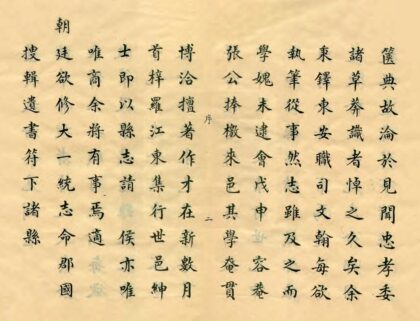 篋典故淪於見聞忠孝委
諸草莽識者悼之久矣余
秉鐸東安職司文翰每欲
執筆從事然志雖及之而
學媿未逮會戊申 容菴
張公捧檄來邑其學奄貫
序 二
博洽擅著作才在新數月
首梓羅江東集行世邑紳
士即以縣志請 侯亦唯
唯商余將有事焉適
朝廷欲修大一統志命郡國
搜輯遺書符下諸縣